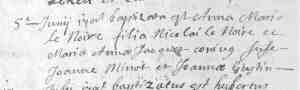 5ta Junij 1701 baptizata est Anna Maria
le Noire filia Nicolai le Noire et
Maria Anna Jacques coniug susc
Joanne Minot et Joanna
baptizatus est hubertus